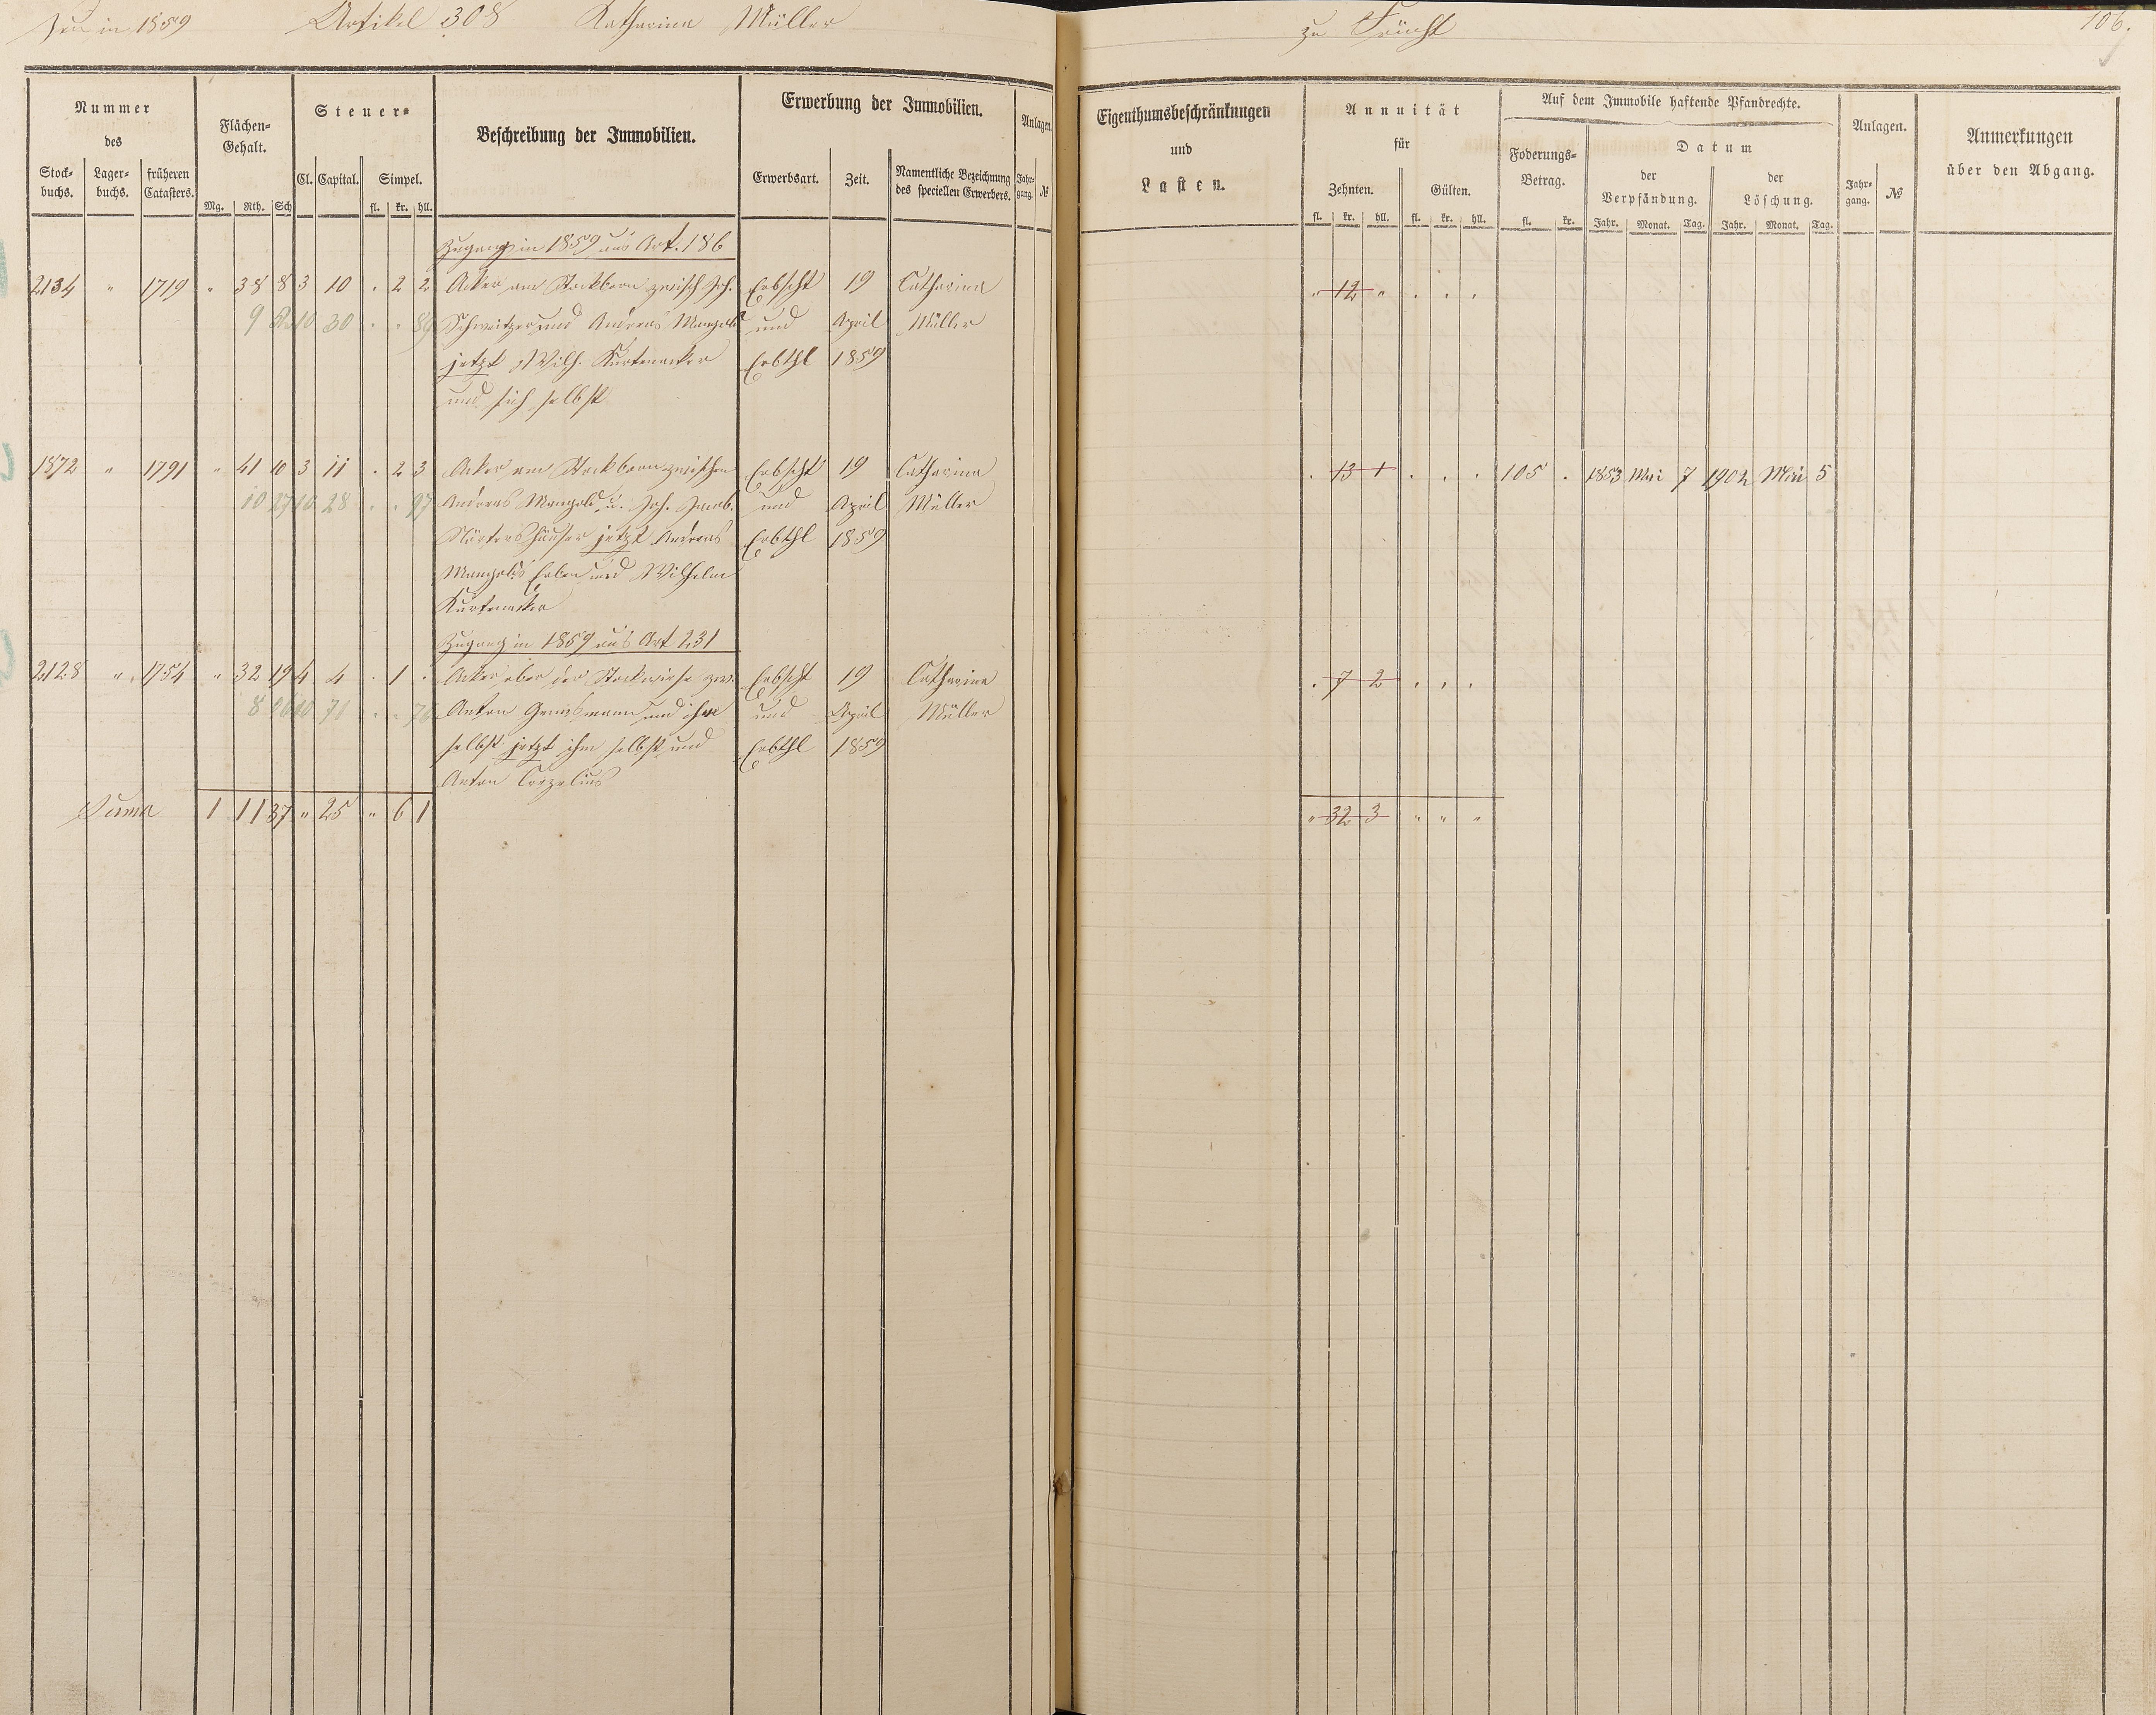 Neu in 1859 Artikel 308 Katharina Müller zu Frücht 106.
Nummer des
Stock-buchs. Lager-buchs. früheren Catasters.
Flächen-Gehalt.
Mg. Rth. Sch
Steuer-
Cl. Capital. Simpel.
fl. kr. hll.
Beschreibung der Immobilien.
Erwerbung der Immobilien.
Erwerbsart. Zeit. Namentliche Bezeichnung des speciellen Erwerbers.
Anlagen.
Jahr-gang. №
Eigenthumsbeschränkungen
und
Lasten.
Annuität
für
Zehnten. Gülten.
fl. kr. hll. fl. kr. hll.
Auf dem Immobile haftende Pfandrechte.
Foderungs-Betrag.
fl. kr.
Datum
der Verpfändung. der Löschung.
Jahr. Monat. Tag. Jahr. Monat. Tag.
Anlagen.
Jahr-gang. №
Anmerkungen
über den Abgang.
Zugang in 1859 aus Art. 186
2134 " 1719 " 38 8 3 10 . 2 2 Acker am Stockborn zwisch Joh. Erbscht 19 Catharina " 12 " . . .
9 10 30 . . Schweitzer und Andreas Mangold und April Müller
jetzt Wilh. Kurtenacker Erbthl 1859
und sich selbst
1872 " 1791 " 41 10 3 11 . 2 3 Acker am Stockborn zwischen Erbscht 19 Catharina . 13 1 . . . 105 . 1853 Mai 7 1902 Mai 5
10 27 10 28 . . 97 Andreas Mangold u. Joh. Jacob. und April Müller
jetzt Andreas Erbthl 1859
Mangolds Erben und Wilhelm
Kurtenacker
Zugang in 1859 aus Art 231
2128 " 1754 " 32 19 4 4 . 1 . Acker ober der Stockwiese zw. Erbscht 19 Catharina . 7 2 . . .
8 10 71 . . Anton und ihm und April Müller
selbst jetzt ihm selbst und Erbthl 1859
Anton Corzelius
Suma 1 11 37 " 25 " 6 1 " 32 3 " " "